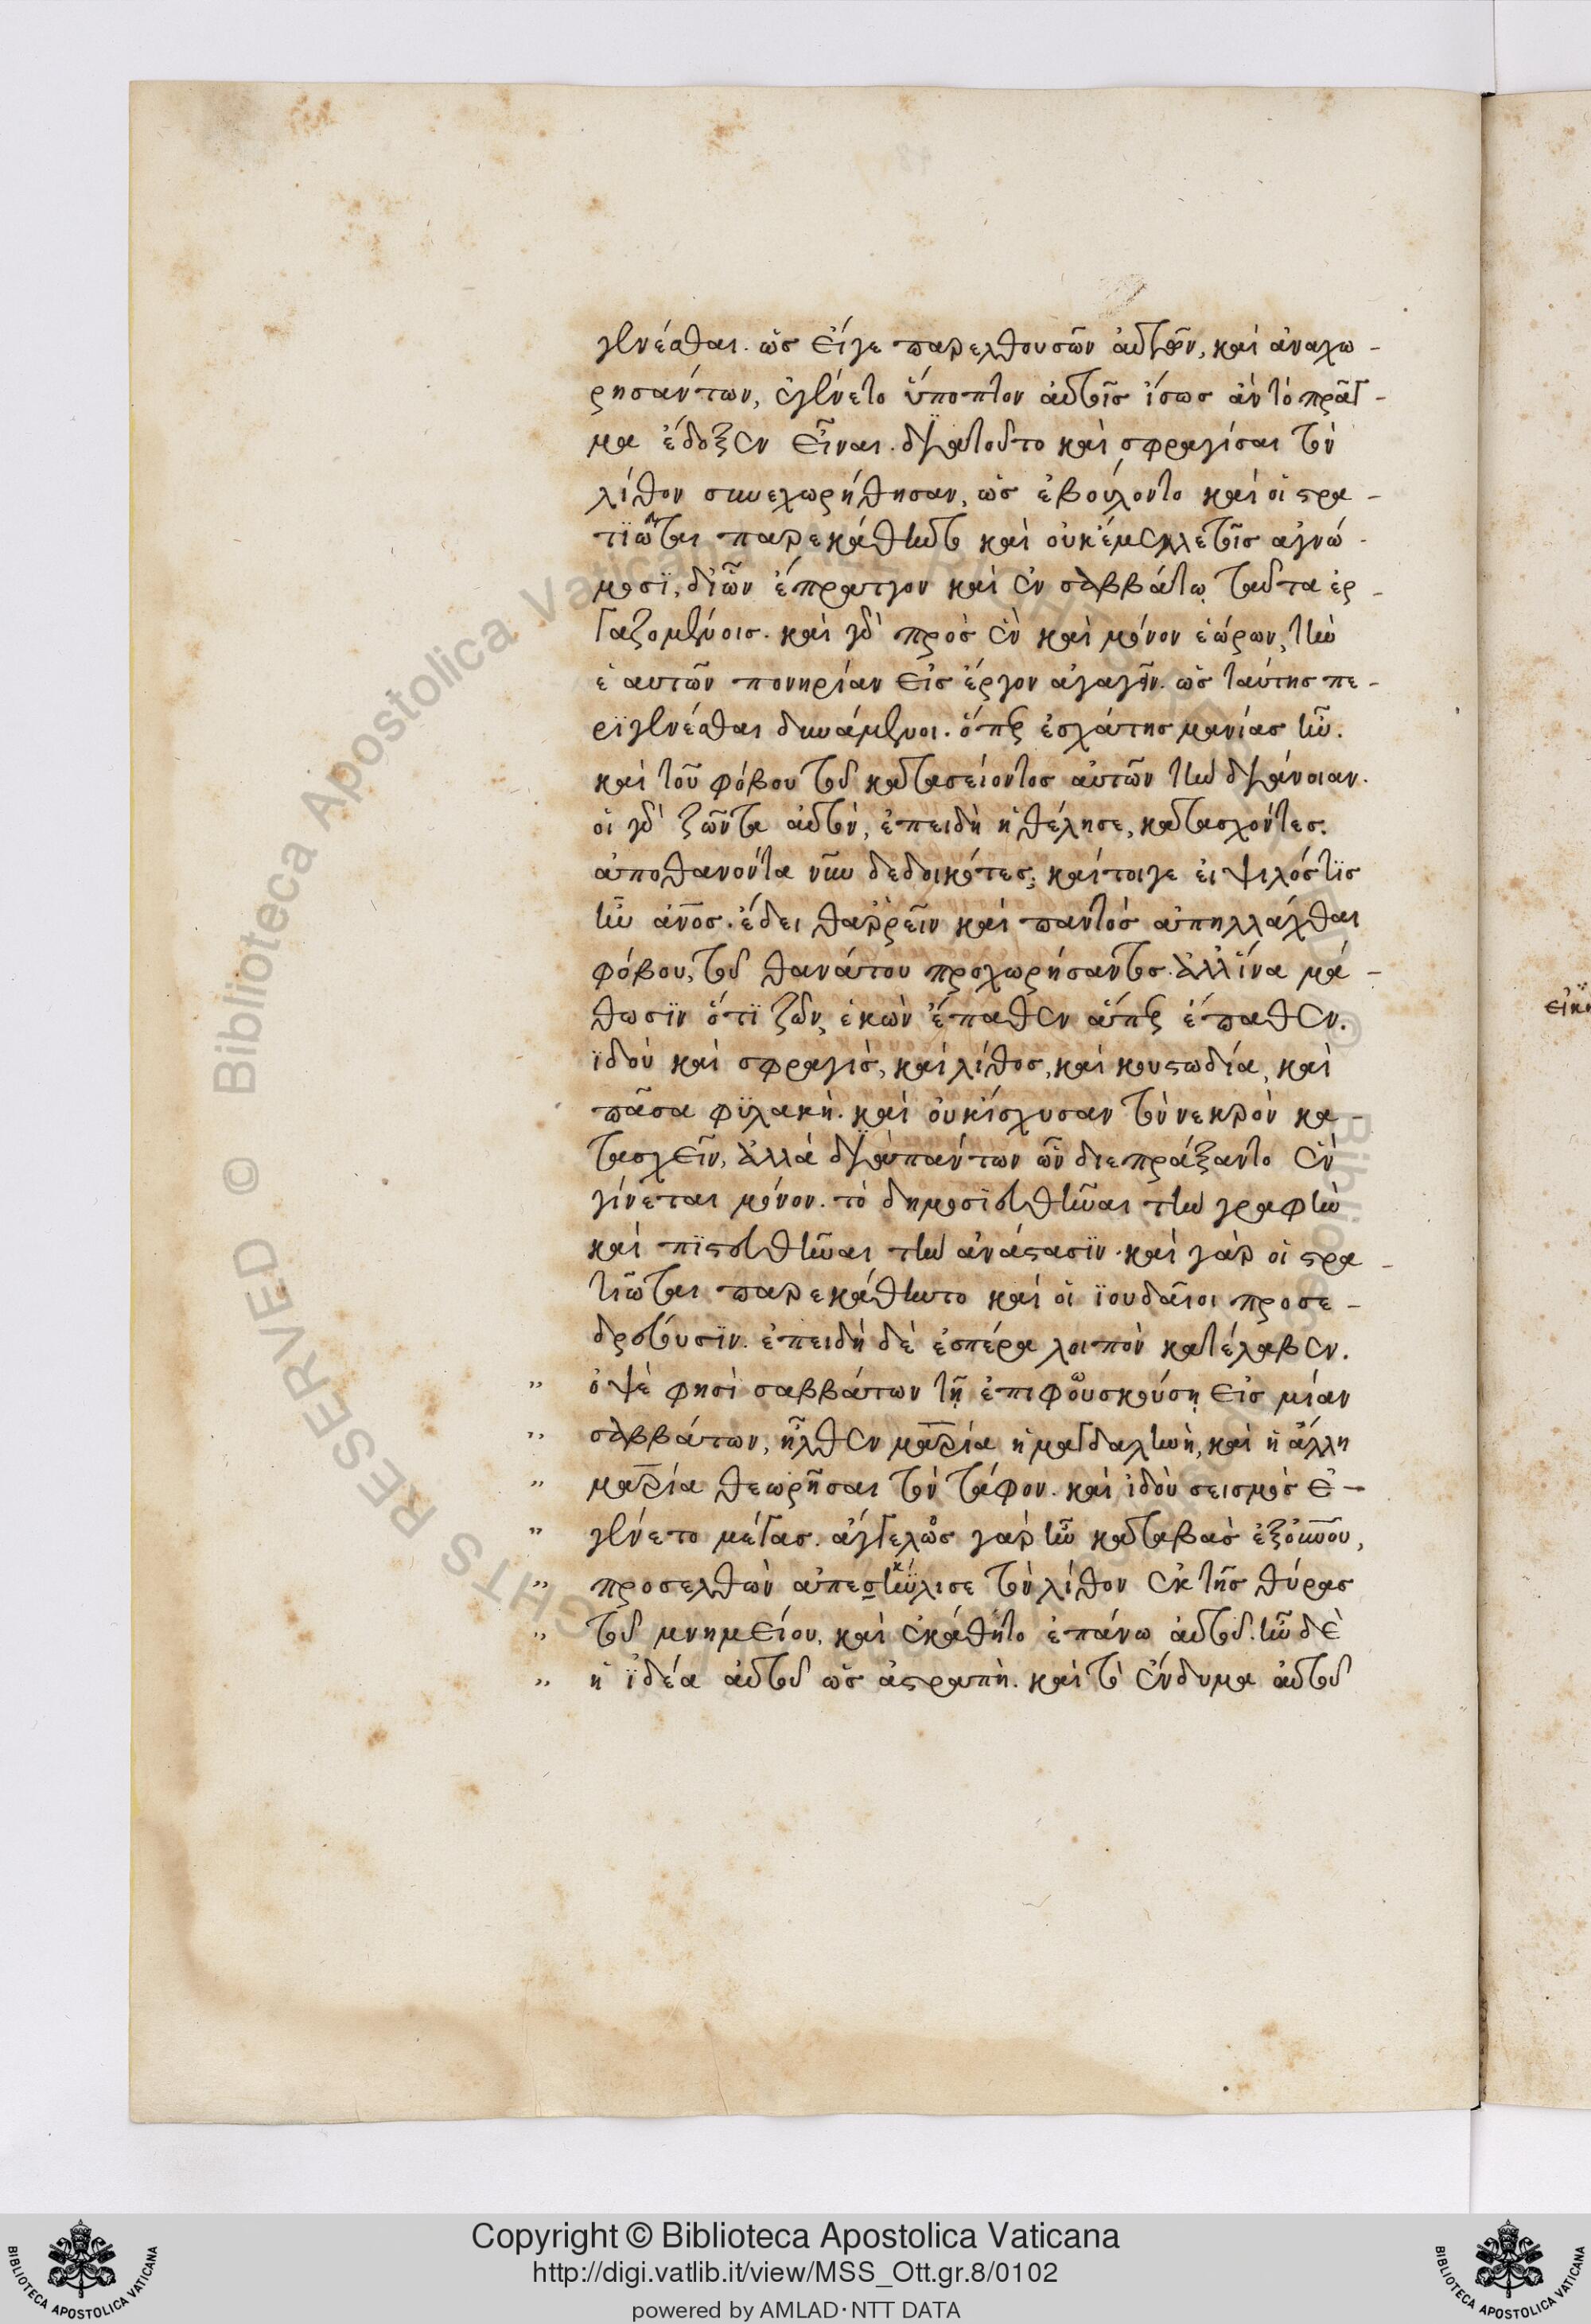 γενέσθαι. ὡς εἴγε παρελθουσῶν αὐτῶν, καὶ ἀναχω-
ρησάντων, ἐγένετο ὕποπτον αὐτοῖς ἴσως ἂν τὸ πρᾶγ-
μα ἔδοξεν εἶναι. διατοῦτο καὶ σφραγίσαι τὸν
λίθον συνεχωρήθησαν, ὡς ἐβούλοντο καὶ οἱ στρα-
τϊῶται παρεκάθηντο καὶ οὐκ ἔμελλε τοῖς ἀγνώ-
μοσϊ, δι' ὧν ἔπραττον καὶ ἐν σαββάτω ταῦτα ἐρ-
γαζομένοις. καὶ γὰρ πρὸς ἓν καὶ μόνον ἑώρων, τὴν
ἑαυτῶν πονηρίαν εἰς ἔργον ἀγαγεῖν. ὡς ταύτης πε-
ρϊγενέσθαι δυνάμενοι. ὅπερ ἐσχάτης μανίας ἦν.
καὶ τοῦ φόβου τοῦ κατασείοντος αὐτῶν τὴν διάνοιαν.
οἱ γὰρ ζῶντα αὐτὸν, ἐπειδὴ ἠθέλησε, κατασχόντες.
ἀποθανόντα νῦν δεδοικότες, καίτοιγε εἰ ψιλός τϊς
ἦν ἄνος. ἔδει θαρρεῖν καὶ παντὸς ἀπηλλάχθαι
φόβου, τοῦ θανάτου προχωρήσαντος. ἀλλ' ἵνα μά-
θωσϊν ὅτϊ ζῶν ἑκὼν ἔπαθεν ἅπερ ἔπαθεν.
ϊδοὺ καὶ σφραγὶς, καὶ λίθος, καὶ κουστωδία, καὶ
πᾶσα φϋλακὴ. καὶ οὐκ ἴσχυσαν τὸν νεκρὸν κα-
τασχεῖν, ἀλλὰ διὰ πάντων ὧν διεπράξαντο ἓν
γίνεται μόνον. τὸ δημοσϊευθῆναι τὴν γραφὴν
καὶ πϊστευθῆναι τὴν ἀνάστασϊν. καὶ γὰρ οἱ στρα-
τιῶται παρεκάθηντο καὶ οἱ ϊουδαῖοι προσε-
δρεύουσϊν. ἐπειδὴ δὲ ἑσπέρα λοιπὸν κατέλαβεν.
" ὀψὲ φησὶ σαββάτων τῇ ἐπιφωσκούσῃ εἰς μίαν
" σαββάτων, ἦλθεν μαρία ἡ μαγδαληνὴ, καὶ ἡ ἄλλη
" μαρία θεωρῆσαι τὸν τάφον. καὶ ἰδοὺ σεισμὸς ἐ-
" γένετο μέγας. ἄγγελος γὰρ κυ καταβὰς ἐξ οὐνου,
" προσελθὼν ἀπεκύλισε τὸν λίθον ἐκ τῆς θύρας
" τοῦ μνημείου, καὶ ἐκάθητο ἐπάνω αὐτοῦ. ἦν δὲ
" ἡ ϊδέα αὐτοῦ ὡς ἀστραπὴ. καὶ τὸ ἔνδυμα αὐτοῦ
Copyright © Biblioteca Apostolica Vaticana
http://digi.vatlib.it/view/MSS_Ott.gr.8/0102
powered by AMLAD·NTT DATA